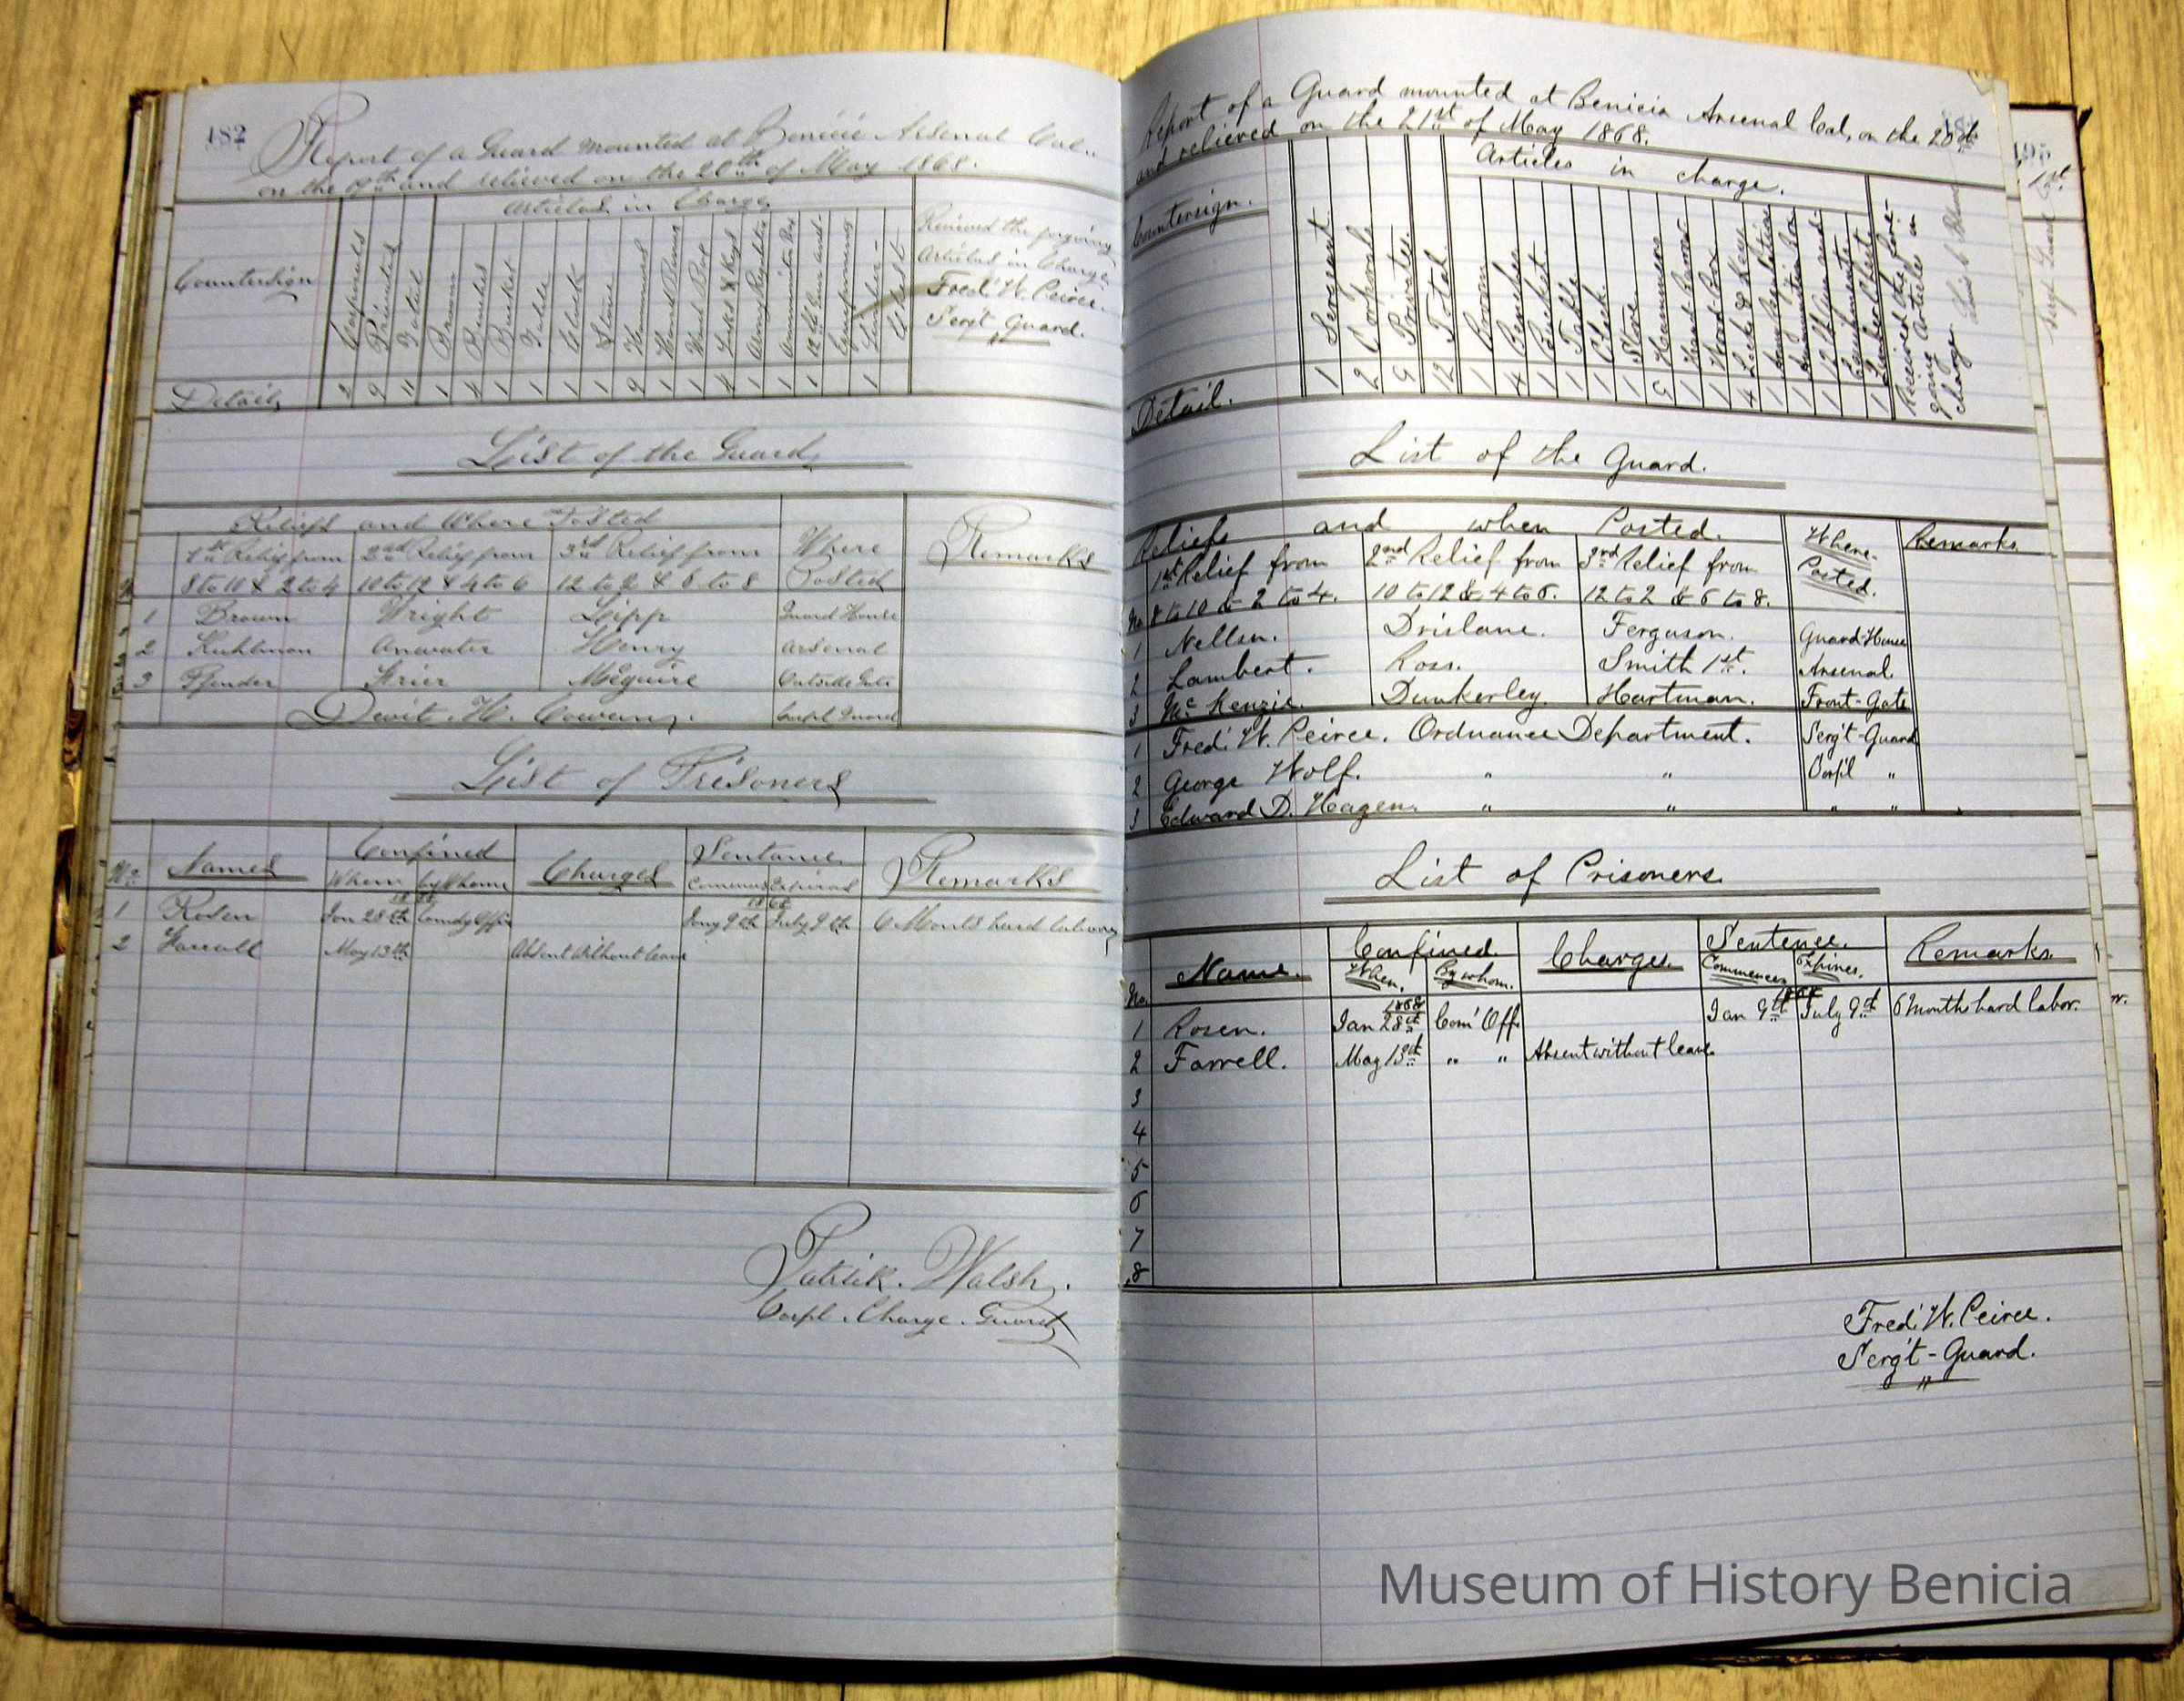 182
Report of a Guard mounted at Benicia Arsenal Cal..
on the 19th and relieved on the 20th of May 1868.
Articles in Charge
Countersign
Corporals
Privates
Total
Broom
Benches
Bucket
Table
Clock
Stove
Hammers
Hand Barrow
Wood Box
Locks & Keys
Army Regulations
Ammunition Box
12 lb Gun and
Timber
Chest
Received the forgoing
Articles in Charge
Fred. W. Peirce.
Serg't Guard.
Detail 2 9 11 1 4 1 1 1 1 9 1 1 4 1 1 1 1
List of the Guard
Reliefs and Where Posted
Where Posted
Remarks
1st Relief from 8 to 10 & 2 to 4
2nd Relief from 10 to 12 & 4 to 6
3rd Relief from 12 to 2 & 6 to 8
1 Brown Wright Lipp Guard House
2 Kuhlman Henry Arsenal
3 Pfender McGuire Outside Gate
Dewit. H. Cowen. Corpl Guard
List of Prisoners
No Names Confined Charges Sentance Remarks
When by Whome Comences Expires
1 Rosen Jan 28th 1868 Comdg Offi Jany 9th 1868 July 9th 6 Months hard labour
2 Farrell May 13th Absent Without leave
Patrik. Walsh.
Corpl. Charge. Guard
Report of a Guard mounted at Benicia Arsenal Cal, on the 20th
and relieved on the 21st of May 1868.
Articles in charge.
Countersign.
Sergeant.
Corporals
Privates.
Total.
Broom
Benches
Bucket
Table
Clock.
Stove.
Hammers
Hand Barrow
Wood Box
Locks & Keys
Army Regulations
Ammunition Box
12 lb Gun and
Implements
Timber Chest
Received the fore-
going Articles in
charge.
Detail. 1 2 9 12 1 4 1 1 1 1 9 1 1 4 1 1 1 1
List of the Guard.
Reliefs and when Posted.
Where Posted.
Remarks.
1st Relief from 2nd Relief from 3rd Relief from
No. 8 to 10 & 2 to 4. 10 to 12 & 4 to 6. 12 to 2 & 6 to 8.
1 Nellsn. Drislane. Ferguson. Guard-House
2 Lambert. Ross. Smith 1st. Arsenal
3 McKenzie. Dunkerley. Hartman. Front-Gate
1 Fred. W. Peirce. Ordnance Department. Serg't-Guard
2 George Wolf. " " Corp'l "
3 Edward D. Heagen. " " " "
List of Prisoners
No. Name. Confined. Charges. Sentence. Remarks.
When. By whom. Commences Expires.
1 Rosen. Jan 28th 1868 Com' Off. Jan 9th 1868 July 9th 6 Months hard labor.
2 Farrell. May 13th " " Absent without leave
3
4
5
6
7
8
Fred. W. Peirce.
Serg't-Guard.
Museum of History Benicia